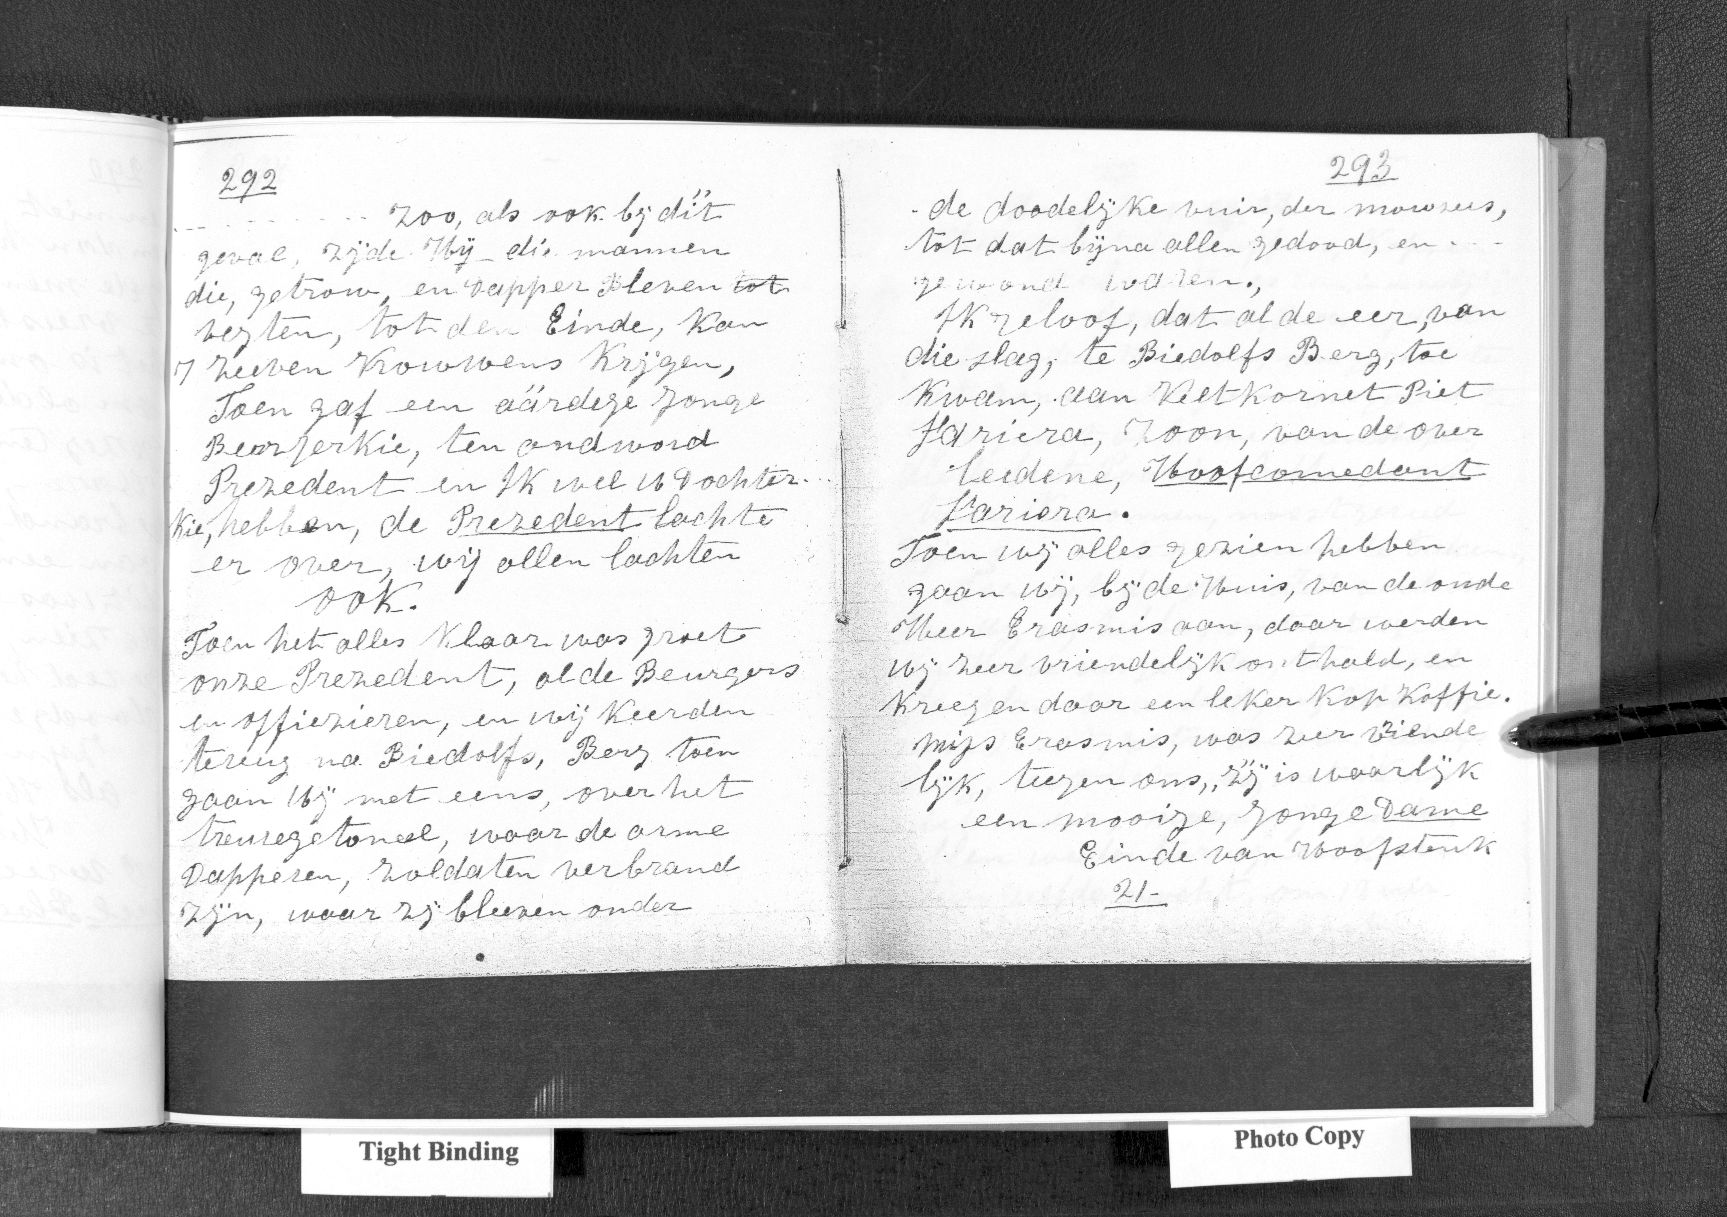 292
Zoo, als ook by dit
geval, zyde Hij die mannen
die, getrouw, en Dapper bleven tot
vegten, tot den Einde, kan
7 zeeven Vrouwens Krijgen,
Toen gaf een aardege Jonge
Beurgerkie, ten andword
Prezedent en Ik wel u Dochter
kie, hebben, de Prezedent lachte
er over, wij allen lachten
OOK.
Toen het alles klaar was groet
onze Prezedent, al de Beurgers
en offiezieren, en wij keerden
tereug na Biedolfs, Berg toen
gaan wij met eens, over het
treuregetoneel, waar de arme
Dapperen, Zoldaten verbrand
zijn, waar zy bleeven onder
293
de doodelyke vuir, der mowsers,
tot dat byna allen gedood, en
gewond waren.,
Ik geloof, dat al de eer, van
die slag, te Biedolfs Berg, toe
Kwam, aan Veltkornet Piet
Fariera, Zoon, van de over
leedene, Hoofcomedant
Fariera.
Toen wij alles gezien hebben
gaan wij, by de Huis, van de oude
Heer Erasmis aan, daar werden
wy zeer vriendelyk onthald, en
kreegen daar een leker Kop Koffie.
Miss Erasmis, was zeer vriende
lyk, teegen ons, Zy is waarlyk
een mooize, Jonge Dame
Einde van Hoofsteuk
21-
Tight Binding
Photo Copy